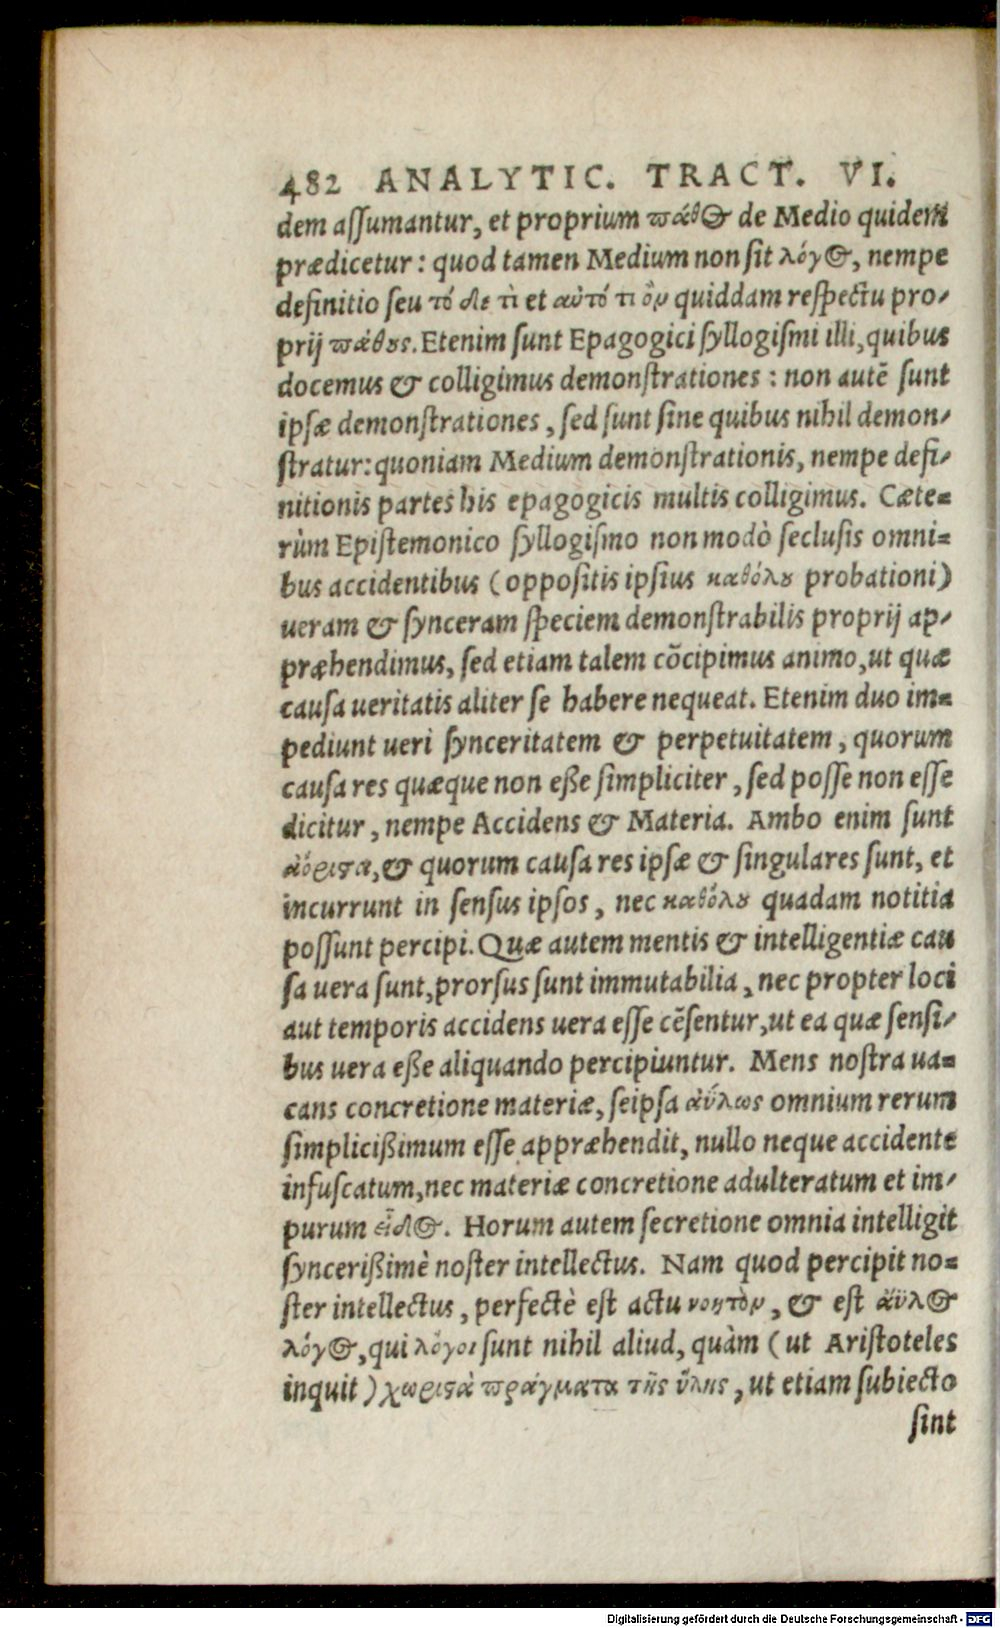 482 ANALYTIC. TRACT. VI.
dem aſſumantur, et proprium πάθ⊕ de Medio quidem
prædicetur: quod tamen Medium non ſit λόγ⊕, nempe
definitio ſeu τό δε τὶ et αὐτό τι ὂν quiddam reſpectu pro-
prij πάθους. Etenim ſunt Epagogici ſyllogiſmi illi, quibus
docemus & colligimus demonſtrationes: non autē ſunt
ipſæ demonſtrationes, ſed ſunt ſine quibus nihil demon-
ſtratur: quoniam Medium demonſtrationis, nempe defi-
nitionis partes his epagogicis multis colligimus. Cæte=
rùm Epiſtemonico ſyllogiſmo non modò ſecluſis omni=
bus accidentibus (oppoſitis ipſius καθόλου probationi)
ueram & ſynceram ſpeciem demonſtrabilis proprij ap-
præhendimus, ſed etiam talem cōcipimus animo, ut quæ
cauſa ueritatis aliter ſe habere nequeat. Etenim duo im=
pediunt ueri ſynceritatem & perpetuitatem, quorum
cauſa res quæque non eße ſimpliciter, ſed poſſe non eſſe
dicitur, nempe Accidens & Materia. Ambo enim ſunt
ἀόριστα, & quorum cauſa res ipſæ & ſingulares ſunt, et
incurrunt in ſenſus ipſos, nec καθόλου quadam notitia
poſſunt percipi. Quæ autem mentis & intelligentiæ cau
ſa uera ſunt, prorſus ſunt immutabilia, nec propter loci
aut temporis accidens uera eſſe cēſentur, ut ea quæ ſenſi-
bus uera eße aliquando percipiuntur. Mens noſtra ua=
cans concretione materiæ, ſeipſa ἀΰλως omnium rerum
ſimplicißimum eſſe appræhendit, nullo neque accidente
infuſcatum, nec materiæ concretione adulteratum et im-
purum εἶδ⊕. Horum autem ſecretione omnia intelligit
ſyncerißimè noſter intellectus. Nam quod percipit no=
ſter intellectus, perfectè eſt actu νοητὸν, & eſt ἄϋλ⊕
λόγ⊕, qui λόγοι ſunt nihil aliud, quàm (ut Ariſtoteles
inquit) χωριστὰ πράγματα τῆς ὕλης, ut etiam ſubiecto
ſint
Digitalisierung gefördert durch die Deutsche Forschungsgemeinschaft - DFG